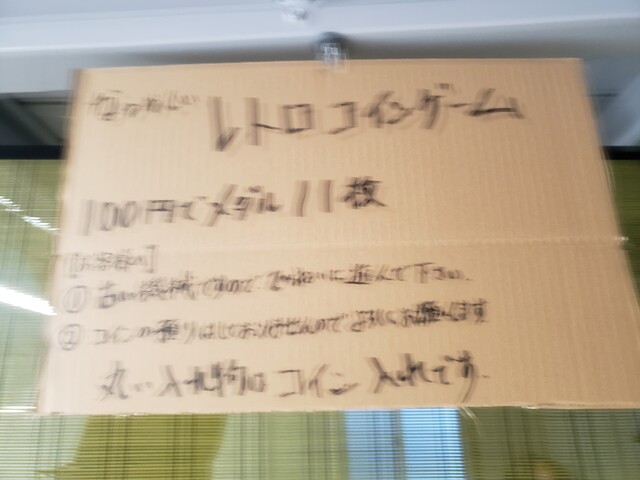 なつかしい レトロコインゲーム
100円でメダル11枚
[お客様へ]
① 古い機械ですので、ていねいに遊んで下さい。
② コインの預りはしておりませんのでよろしくお願いします
丸い入れ物はコイン入れです。